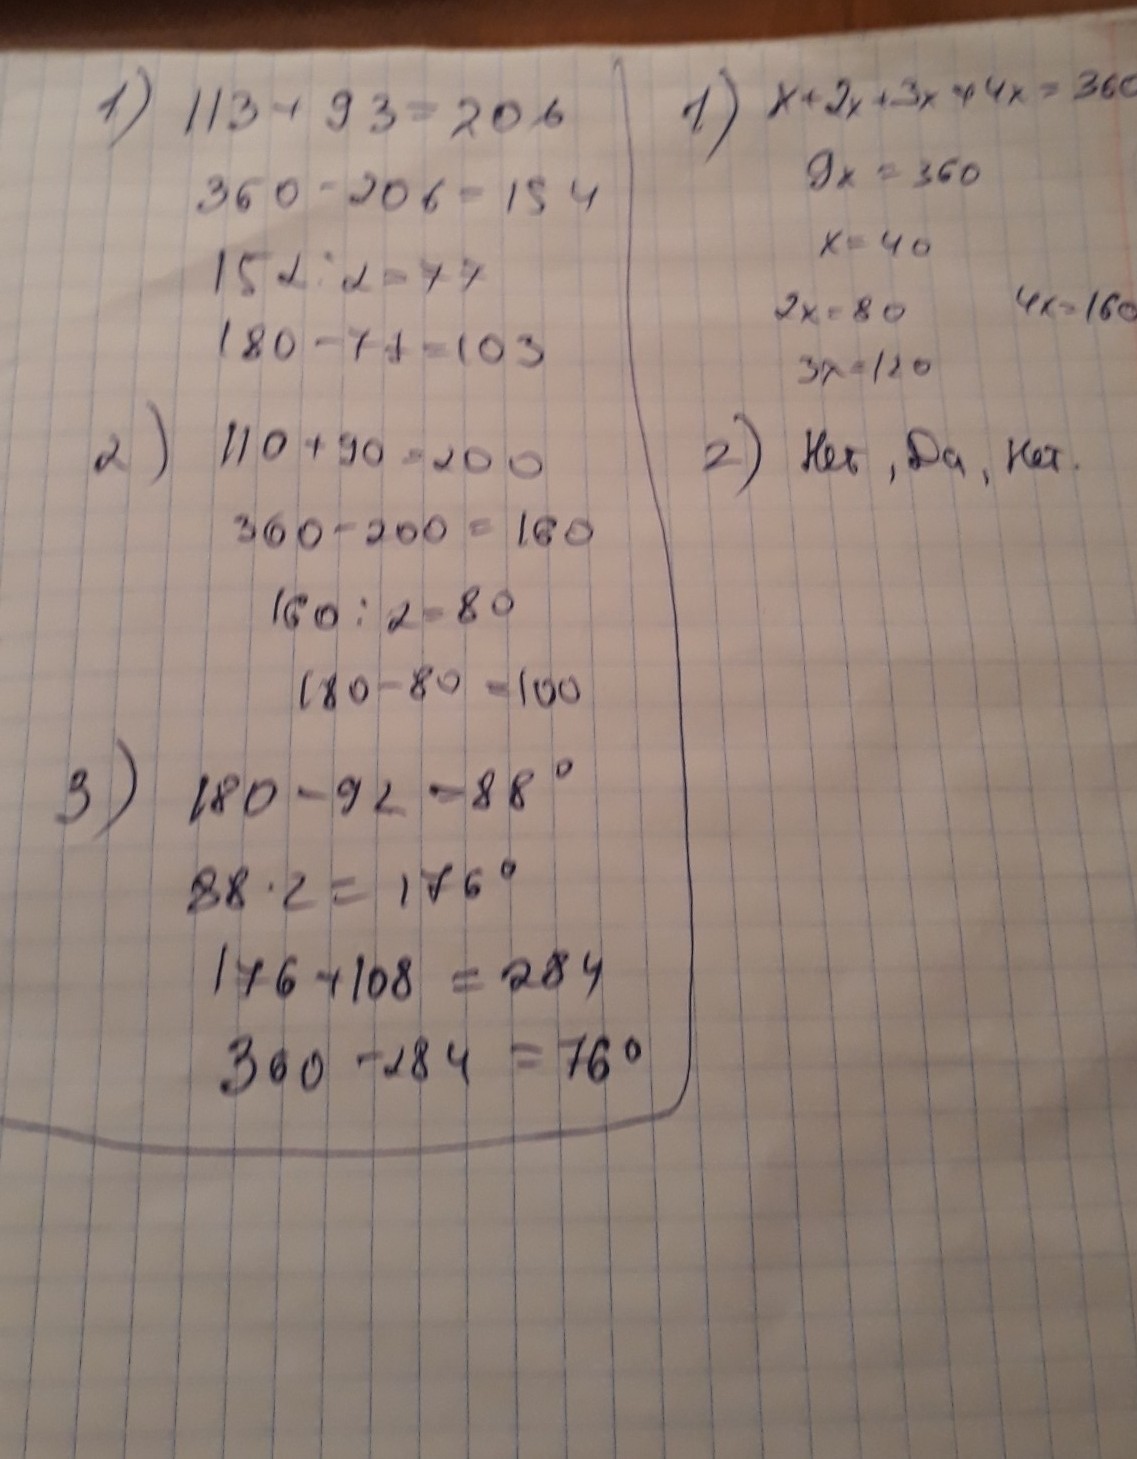 1) 113 + 93 = 206
360 - 206 = 154
152 : 2 = 77
180 - 77 = 103
2) 110 + 90 = 200
360 - 200 = 160
160 : 2 = 80
180 - 80 = 100
3) 180 - 92 = 88°
88 · 2 = 176°
176 + 108 = 284
360 - 284 = 76°
1) x + 2x + 3x + 4x = 360
9x = 360
x = 40
2x = 80 4x = 160
3x = 120
2) Нет, Да, Нет.